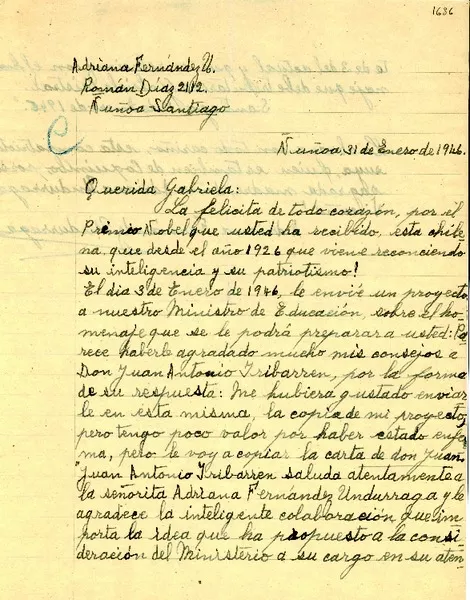 1636
Adriana Fernández U.
Román Díaz 2112.
Ñuñoa Santiago
Ñuñoa, 31 de Enero de 1946.
Querida Gabriela:
La felicita de todo corazón, por el
Premio Nobel que usted ha recibido, esta chile
na, que desde el año 1926 que viene reconciendo
su inteligencia y su patriotismo!
El dia 3 de Enero de 1946, le envié un proyecto
a nuestro Ministro de Educación, sobre el ho-
menaje que se le podrá preparar a usted: Pa
rece haberle agradado mucho mis consejos a
Don Juan Antonio Iribarren, por la forma
de su respuesta: Me hubiera gustado enviar
le en esta misma, la copia de mi proyecto,
pero tengo poco valor por haber estado enfer
ma, pero le voy a copiar la carta de don Juan.
"Juan Antonio Iribarren saluda atentamente a
la señorita Adriana Fernández Undurraga y le
agradece la inteligente colaboración que im
porta la idea que ha propuesto a la consi
deración del Ministerio a su cargo en su aten